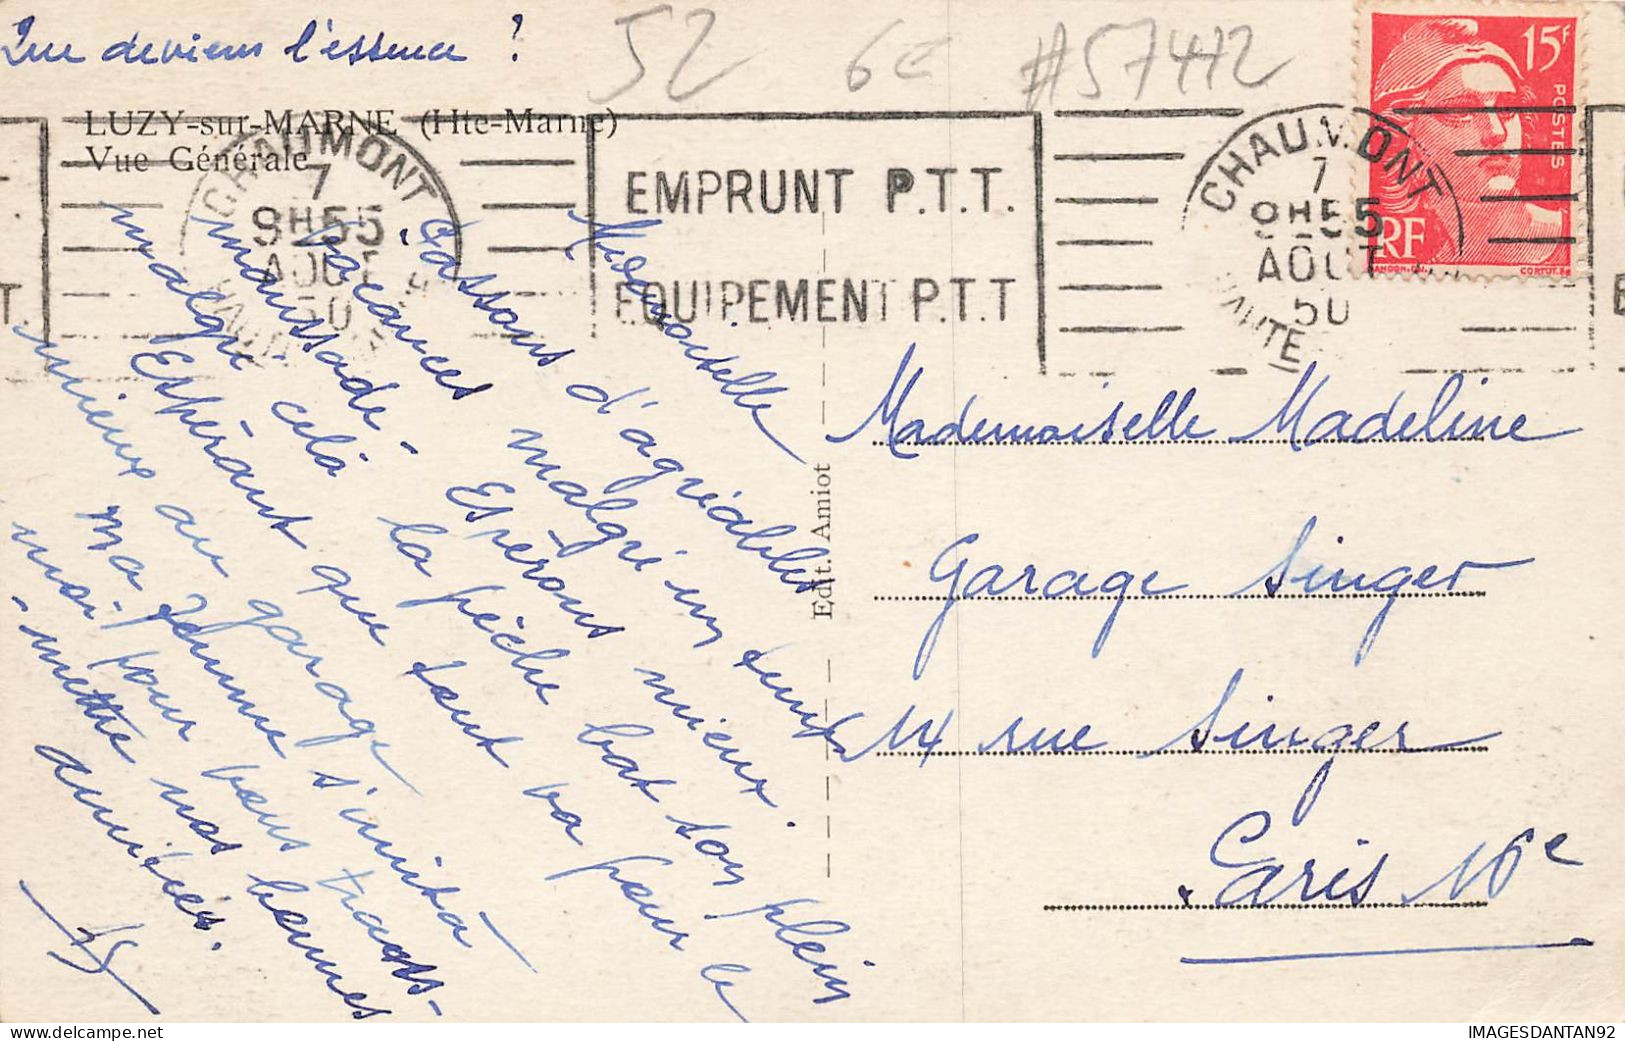 Que deviens l'essence ?
52 6€ #57412
LUZY-sur-MARNE (Hte-Marne)
Vue Générale
CHAUMONT
7
9H55
AOUT
50
HAUTE
EMPRUNT P.T.T.
EQUIPEMENT P.T.T
CHAUMONT
7
9H55
AOUT
50
HAUTE
15F
POSTES
RF
Edit. Amiot
Mademoiselle
Passons d'agréables
vacances malgré un temps
maussade. Espérons mieux.
malgré celà la pêche bat son plein
Espérant que tout va pour le
mieux au garage s'unit à
Ma femme
moi pour vous trans-
-mettre nos bonnes
amitiés.
Mademoiselle Madeline
Garage Singer
14 rue Singer
Paris 16e
IMAGESDANTAN92